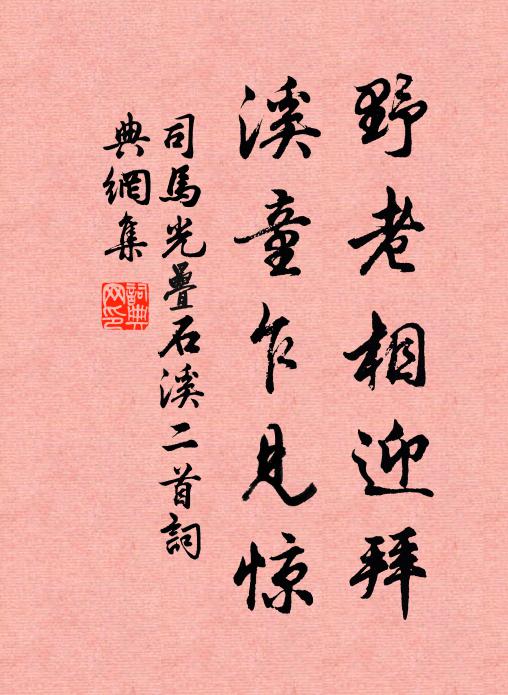 野老相迎拜
溪童乍見惊
司馬光疊石溪二首詞
典網集
詞典
网印